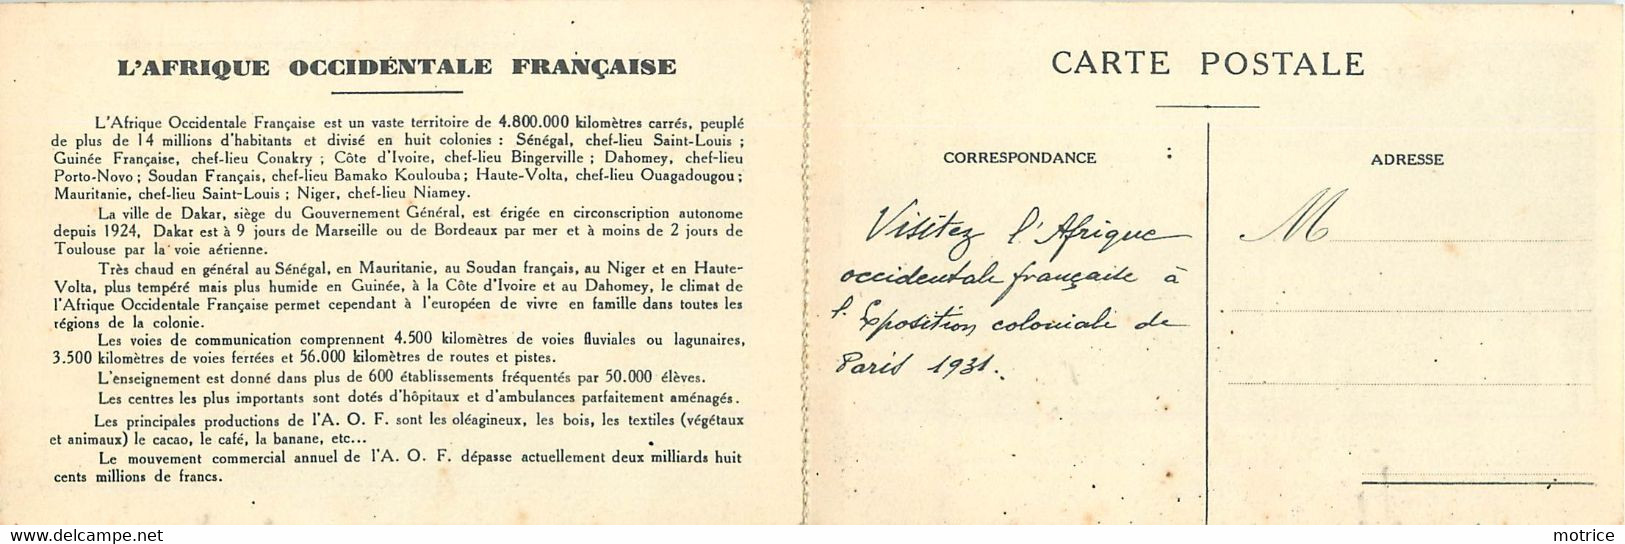 L'AFRIQUE OCCIDENTALE FRANÇAISE
L'Afrique Occidentale Française est un vaste territoire de 4.800.000 kilomètres carrés, peuplé
de plus de 14 millions d'habitants et divisé en huit colonies : Sénégal, chef-lieu Saint-Louis ;
Guinée Française, chef-lieu Conakry ; Côte d'Ivoire, chef-lieu Bingerville ; Dahomey, chef-lieu
Porto-Novo ; Soudan Français, chef-lieu Bamako Koulouba ; Haute-Volta, chef-lieu Ouagadougou ;
Mauritanie, chef-lieu Saint-Louis ; Niger, chef-lieu Niamey.
La ville de Dakar, siège du Gouvernement Général, est érigée en circonscription autonome
depuis 1924, Dakar est à 9 jours de Marseille ou de Bordeaux par mer et à moins de 2 jours de
Toulouse par la voie aérienne.
Très chaud en général au Sénégal, en Mauritanie, au Soudan français, au Niger et en Haute-
Volta, plus tempéré mais plus humide en Guinée, à la Côte d'Ivoire et au Dahomey, le climat de
l'Afrique Occidentale Française permet cependant à l'européen de vivre en famille dans toutes les
régions de la colonie.
Les voies de communication comprennent 4.500 kilomètres de voies fluviales ou lagunaires,
3.500 kilomètres de voies ferrées et 56.000 kilomètres de routes et pistes.
L'enseignement est donné dans plus de 600 établissements fréquentés par 50.000 élèves.
Les centres les plus importants sont dotés d'hôpitaux et d'ambulances parfaitement aménagés.
Les principales productions de l'A. O. F. sont les oléagineux, les bois, les textiles (végétaux
et animaux) le cacao, le café, la banane, etc...
Le mouvement commercial annuel de l'A. O. F. dépasse actuellement deux milliards huit
cents millions de francs.
CARTE POSTALE
CORRESPONDANCE
Visitez l'Afrique
occidentale française à
l'Exposition coloniale de
Paris 1931.
ADRESSE
M
delcampe.net
motrice